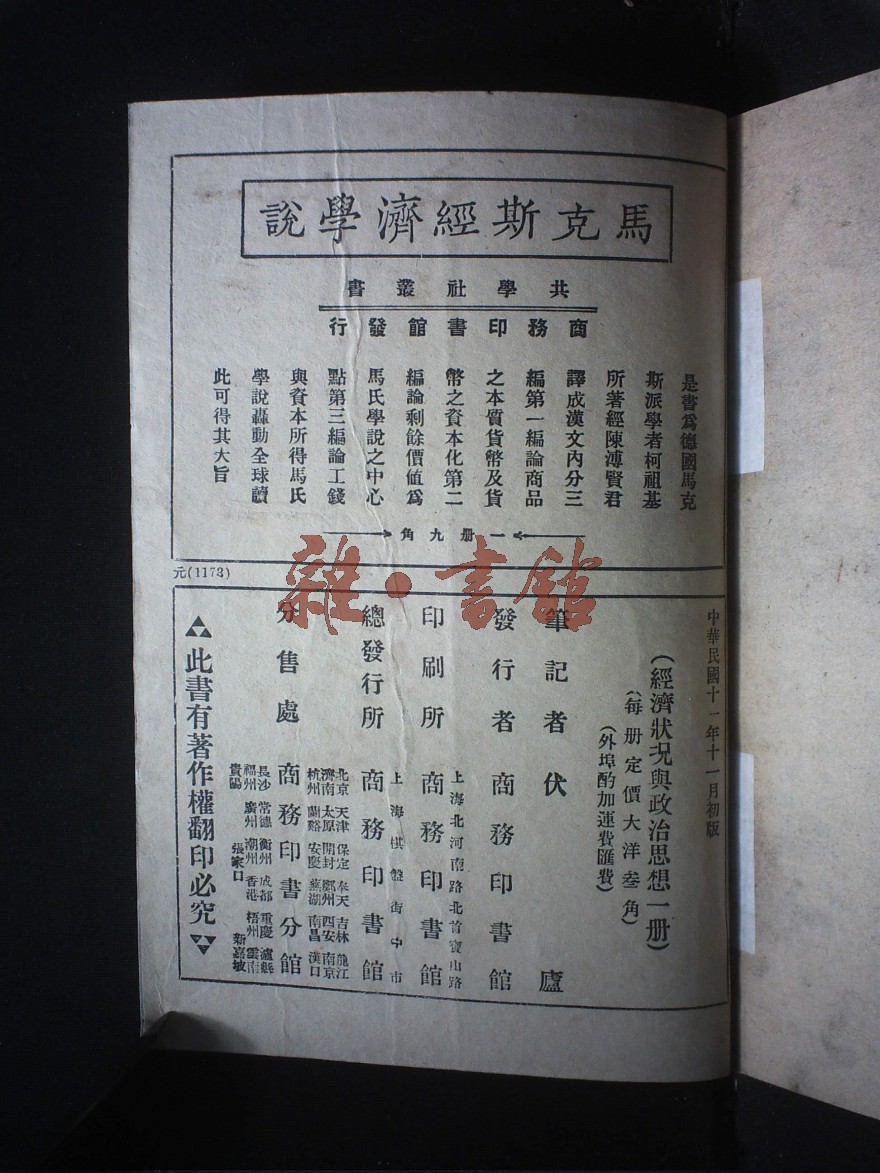 馬克斯經濟學說
共學社叢書
商務印書館發行
是書爲德國馬克
斯派學者柯祖基
所著經陳溥賢君
譯成漢文內分三
編第一編論商品
之本質貨幣及貨
幣之資本化第二
編論剩餘價值爲
馬氏學說之中心
點第三編論工錢
與資本所得馬氏
學說轟動全球讀
此可得其大旨
一册九角
元(1173)
中華民國十一年十一月初版
(經濟狀況與政治思想一册)
(每册定價大洋叁角)
(外埠酌加運費匯費)
筆記者 伏廬
發行者 商務印書館
上海北河南路北首寶山路
印刷所 商務印書館
上海棋盤街中市
總發行所 商務印書館
北京 天津 保定 奉天 吉林 龍江
濟南 太原 開封 鄭州 西安 南京
杭州 蘭谿 安慶 蕪湖 南昌 漢口
分售處 商務印書分館
長沙 常德 衡州 成都 重慶 瀘縣
福州 廣州 潮州 香港 梧州 雲南
貴陽 張家口 新嘉坡
此書有著作權翻印必究
雜·書館